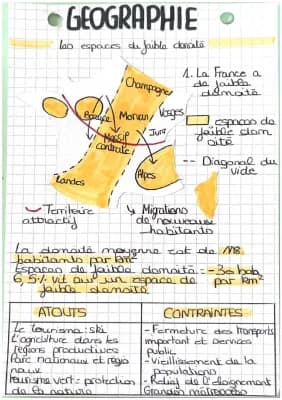 GEOGRAPHIE
Les espaces de faible densité
Champagne
Morvan
Vosges
Jura
Massif
centrale
Landes
Alpes
1. La France a
de faible
densité
espaces de
faible den
sité
-- Diagonal du
vide
Territoire
attractif
Migrations
de nouveaux
habitants
La densité moyenne est de 118
habitants par km²
Espaces de faible densité = -30 hab
par km²
6,5% vit sur un espace de
faible densité
ATOUTS
CONTRAINTES
Le tourisme : ski
L'agriculture dans les
régions productives
Parc nationaux et régio
naux
tourisme vert = protection
de la nature
- Fermeture des transports
important et services
public
- Vieillissement de la
populations
- Relief de l'éloignement
Grandes métropoles